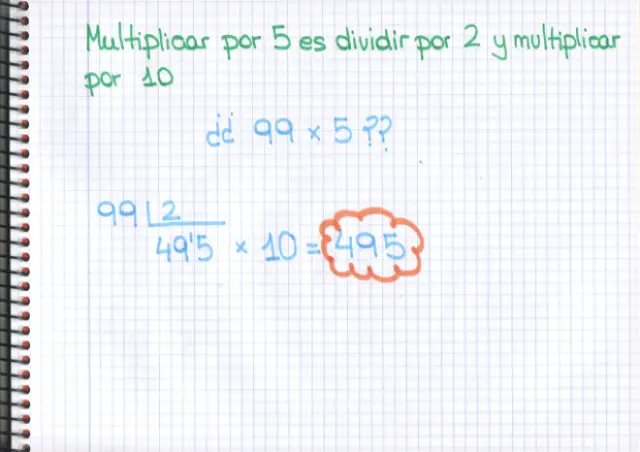 Multiplicar por 5 es dividir por 2 y multiplicar
por 10
¿¿ 99 × 5 ??
99 | 2
49'5 × 10 = 495